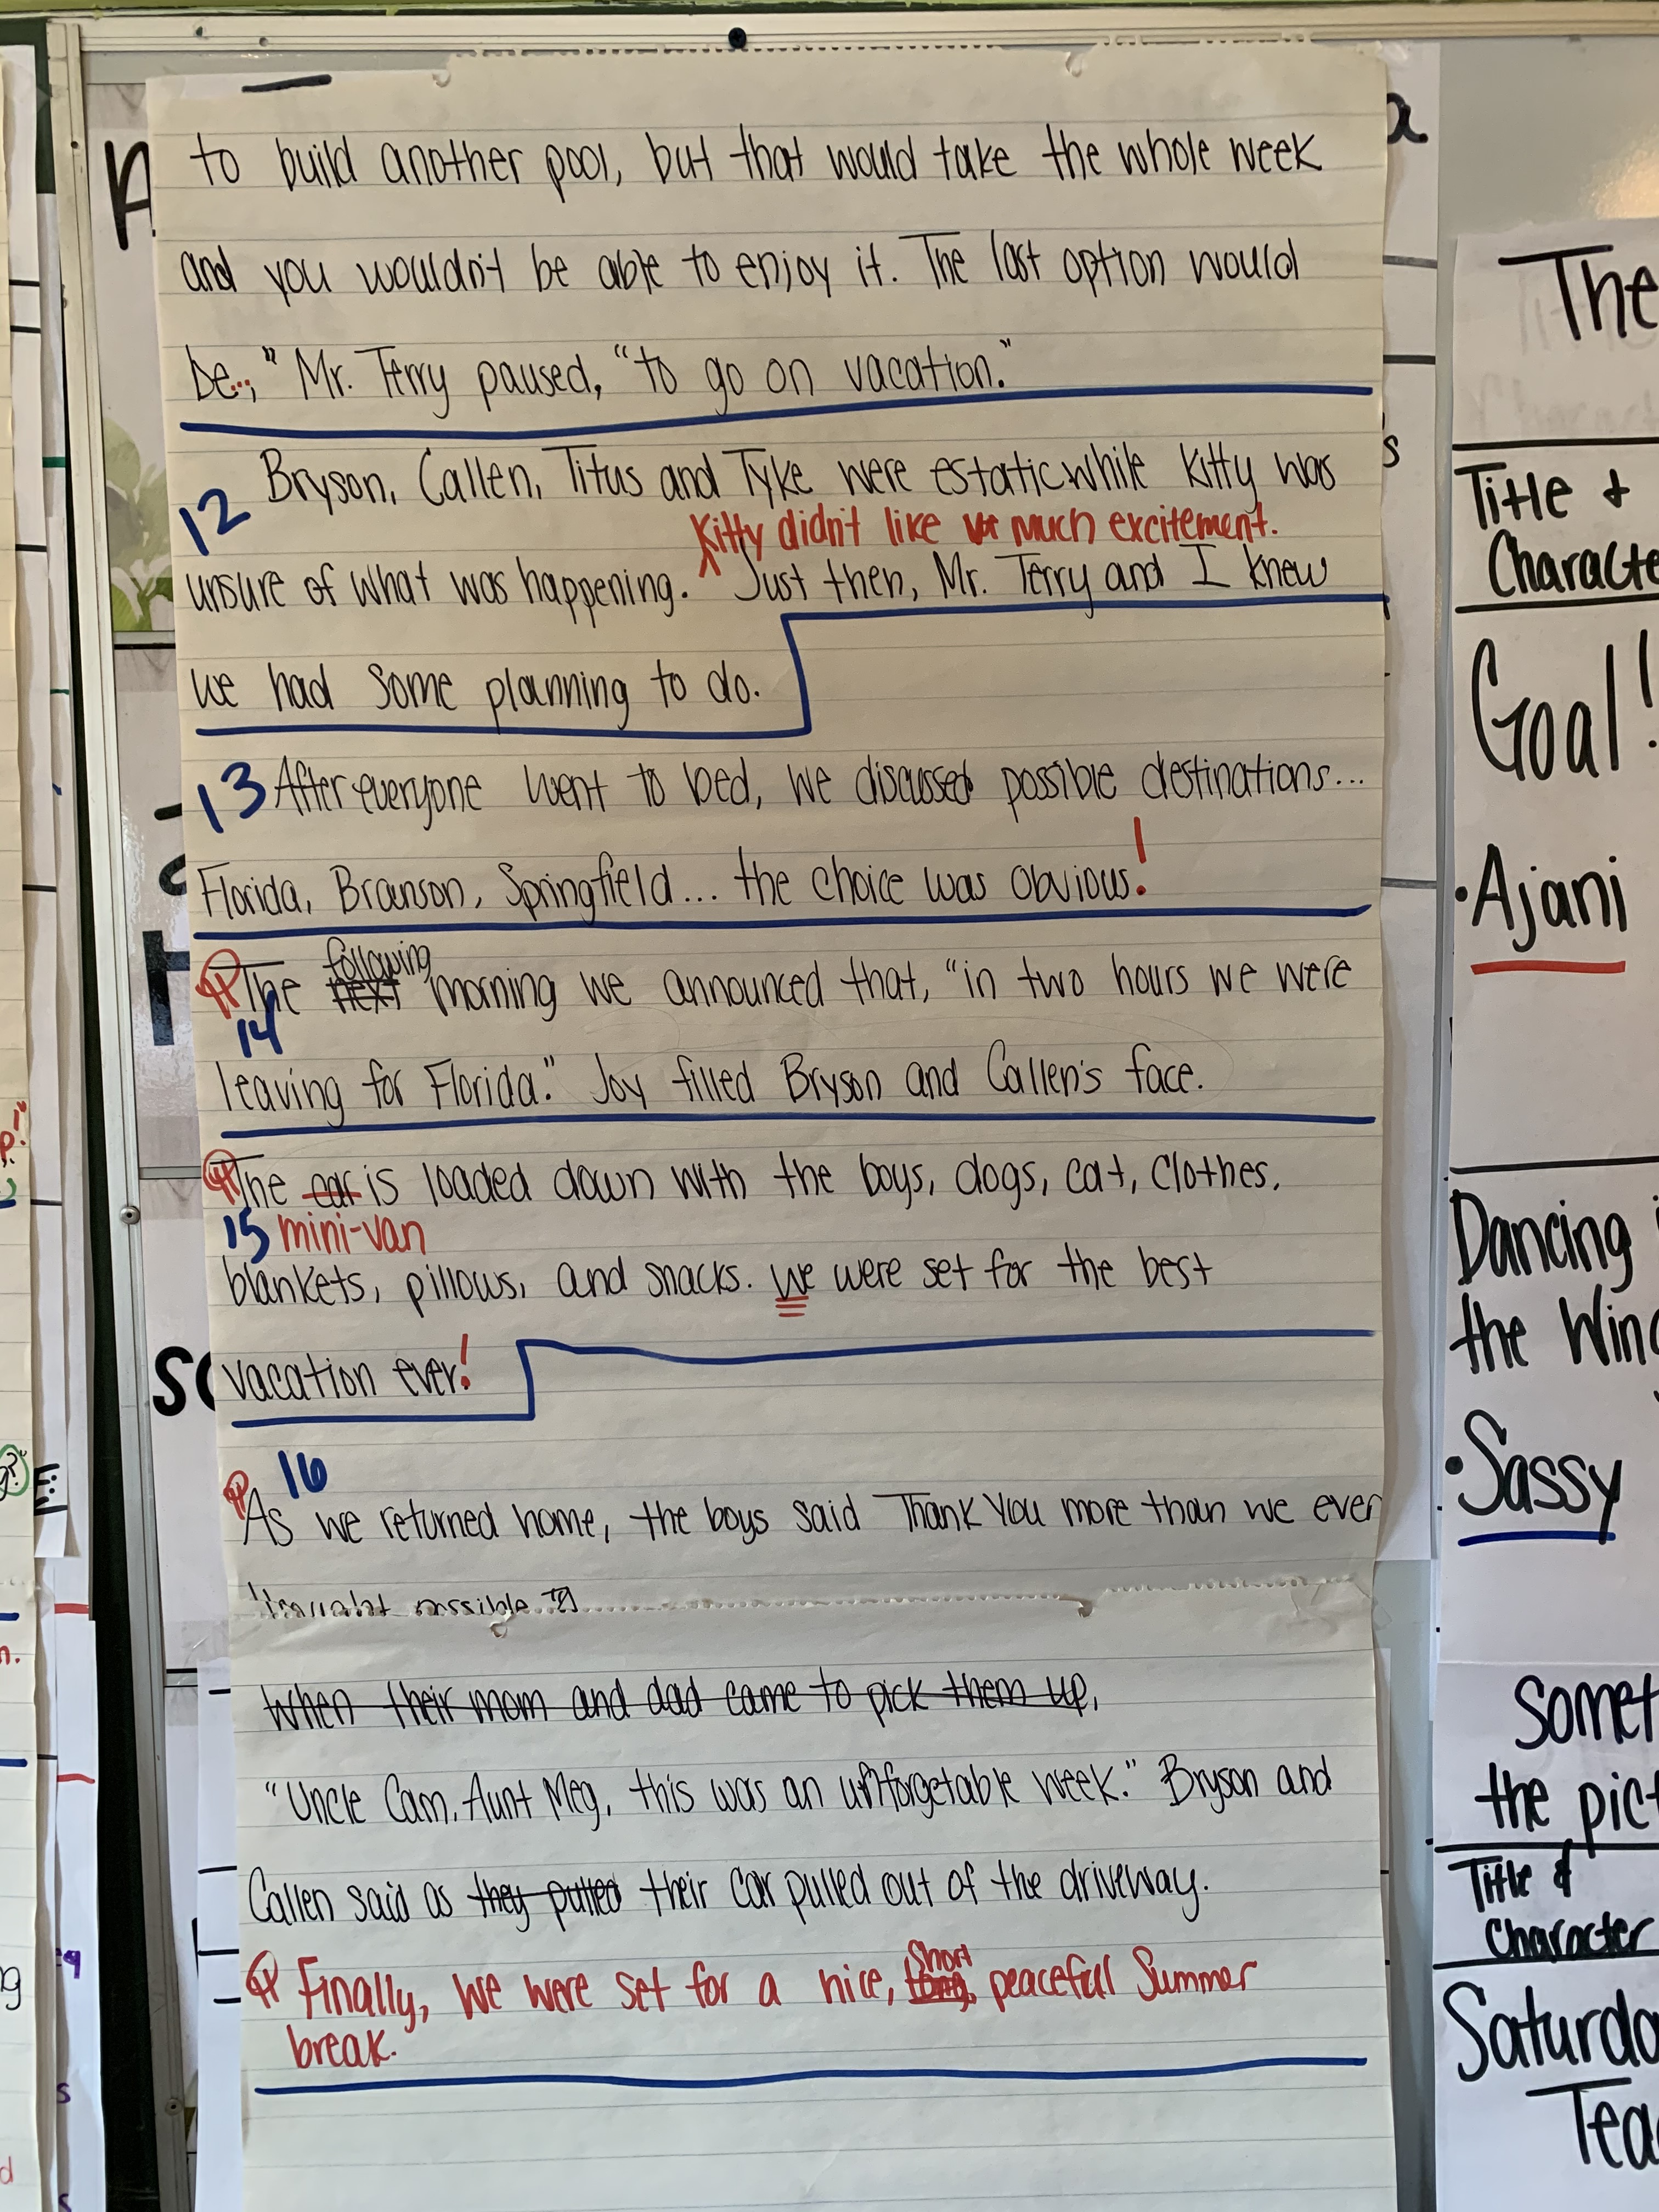 to build another pool, but that would take the whole week
and you wouldn't be able to enjoy it. The last option would
be...," Mr. Terry paused, "to go on vacation."
12
Bryson, Callen, Titus and Tyke were estatic while Kitty was
Kitty didn't like much excitement.
unsure of what was happening. ^ Just then, Mr. Terry and I knew
we had some planning to do.
13 After everyone went to bed, we discussed possible destinations...
Florida, Branson, Springfield... the choice was obvious!
following
The next morning we announced that, "in two hours we were
14
leaving for Florida." Joy filled Bryson and Callen's face.
The car is loaded down with the boys, dogs, cat, clothes,
15 mini-van
blankets, pillows, and snacks. We were set for the best
vacation ever!
16
As we returned home, the boys said Thank You more than we ever
thought possible.
When their mom and dad came to pick them up,
"Uncle Cam, Aunt Meg, this was an unforgetable week." Bryson and
Callen said as they pulled their car pulled out of the driveway.
Short
Finally, we were set for a nice, long, peacefull Summer
break.
The
Title &
Characte
Goal!
• Ajani
Dancing i
the Win
• Sassy
Somet
the pict
Title &
Character
Saturda
Tea